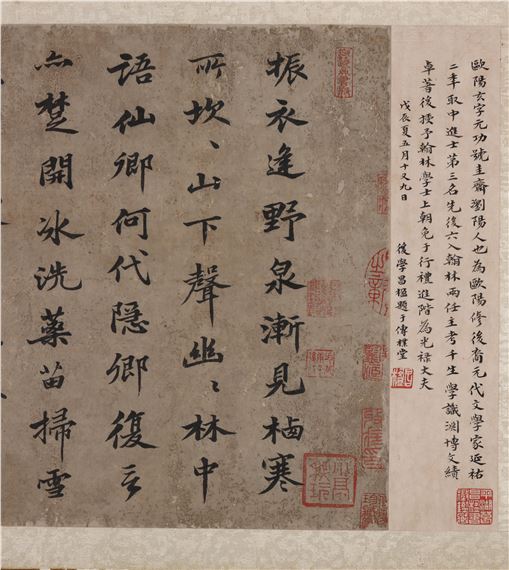 歐陽玄字元功號圭齋瀏陽人也為歐陽修後裔元代文學家延祐
二年取中進士第三名先後六入翰林兩任主考平生學識淵博文績
卓著後授予翰林學士上朝免于行禮進階為光祿大夫
戊辰夏五月十又九日 後學昌楹題于傳樸堂
振衣逢野泉漸見栖寒
所坎〻山下聲幽〻林中
語仙卿何代隱卿復言
亦楚開冰洗藥苗掃雪